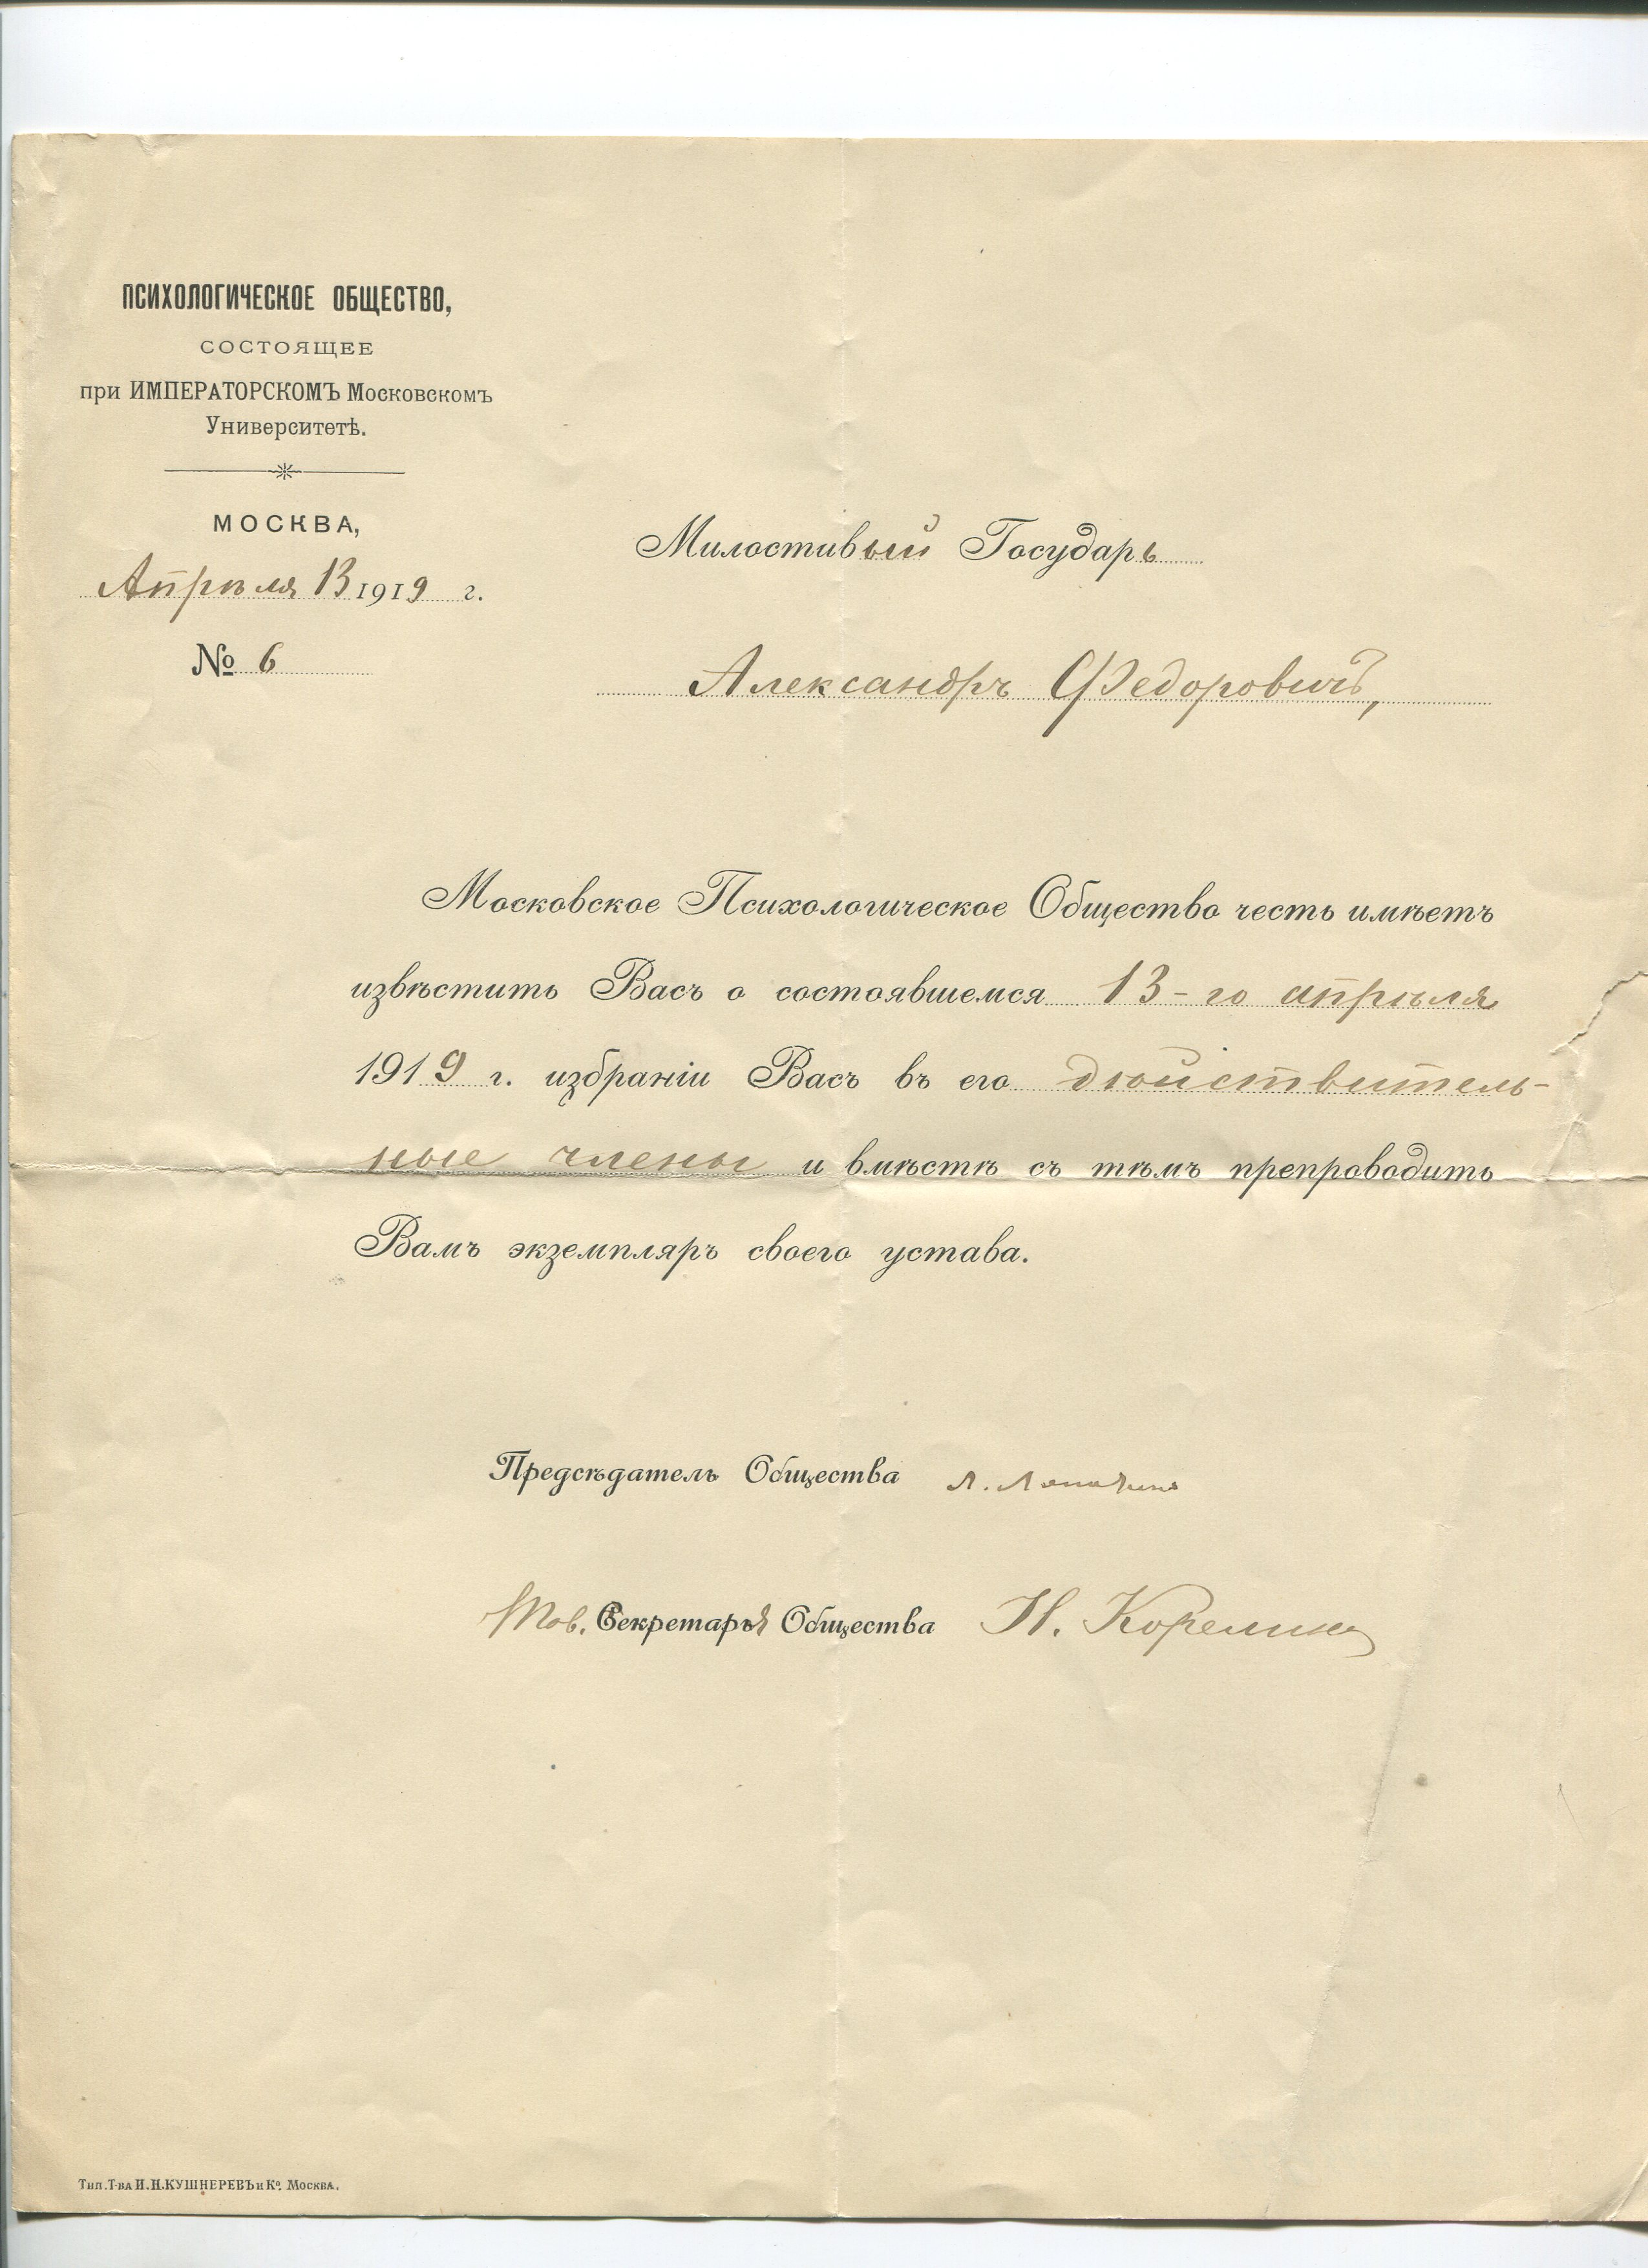 ПСИХОЛОГИЧЕСКОЕ ОБЩЕСТВО,
СОСТОЯЩЕЕ
при ИМПЕРАТОРСКОМЪ Московскомъ
Университетѣ.
МОСКВА,
Апрѣля 13 1919 г.
№ 6
Милостивый Государь
Александръ Федоровичъ,
Московское Психологическое Общество честь имѣетъ
извѣстить Васъ о состоявшемся 13-го апрѣля
1919 г. избраніи Васъ въ его дѣйствитель-
ные члены и вмѣстѣ съ тѣмъ препроводить
Вамъ экземпляръ своего устава.
Предсѣдатель Общества Л. Лопатинъ
Тов. Секретаря Общества Н. Корелина
Тип. Т-ва И. Н. КУШНЕРЕВЪ и Ко. Москва.